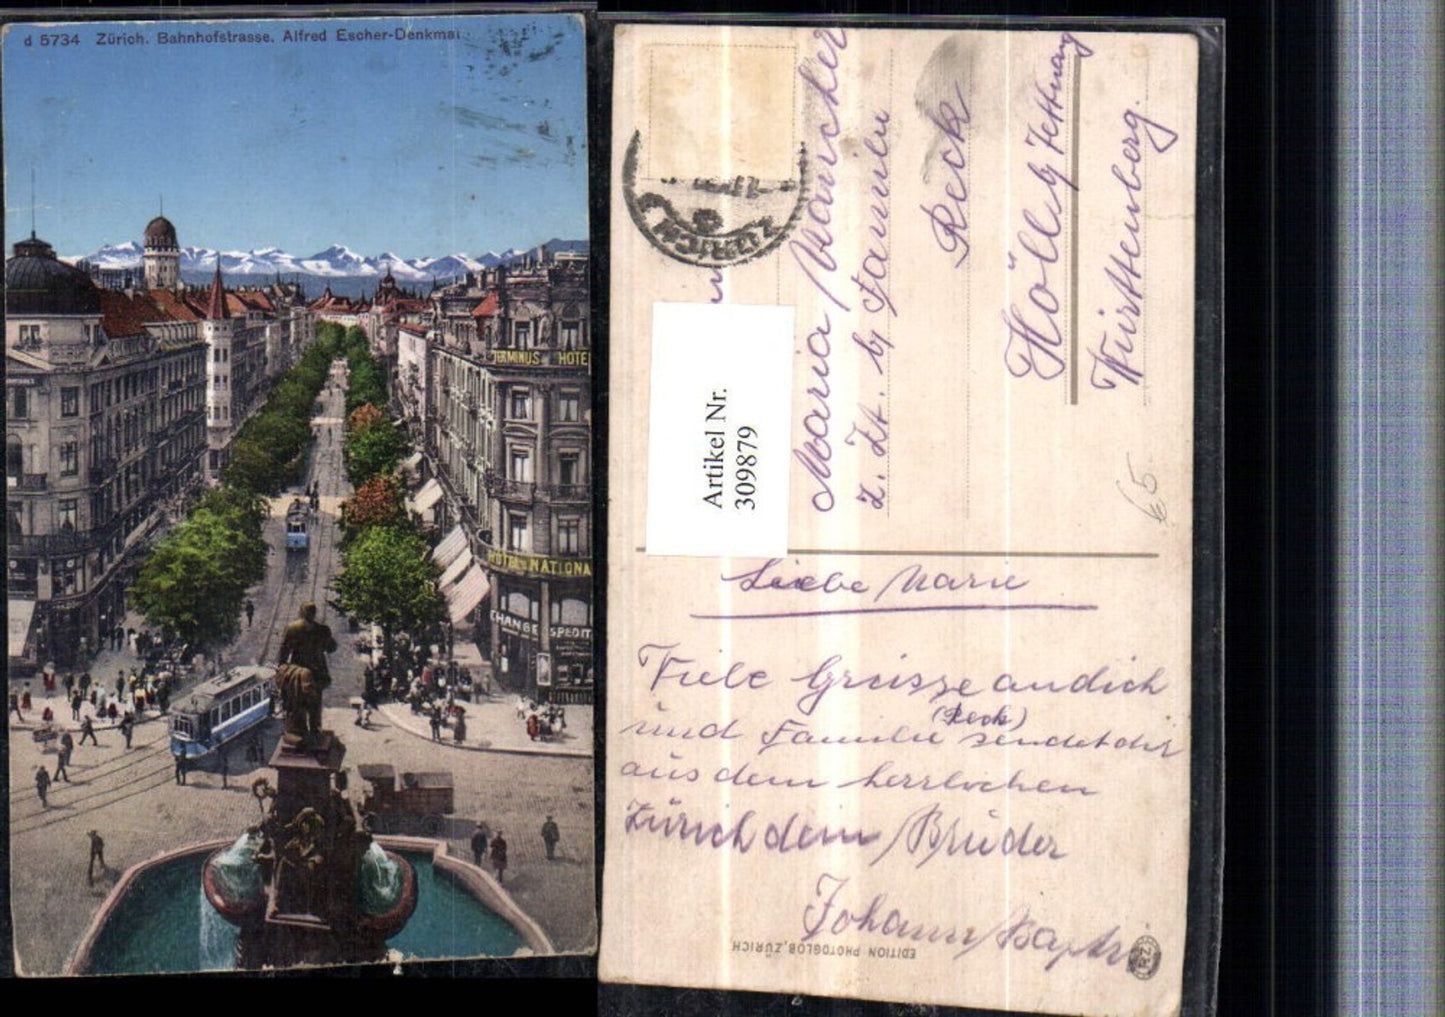 d 5734 Zürich. Bahnhofstrasse. Alfred Escher-Denkmal
TERMINUS HOTEL
HOTEL NATIONA
CHANGE SPEDIT
ZÜRICH
Maria
z. Zt. b/ Familie
Reck
Höll b/ Tettnang
Württemberg.
Artikel Nr.
309879
65
Liebe Marie
Viele Grüsse an dich
(Reck)
und Familie sendet dir
aus dem herrlichen
Zürich dein Bruder
Johann Bapt
EDITION PHOTOGLOB, ZÜRICH